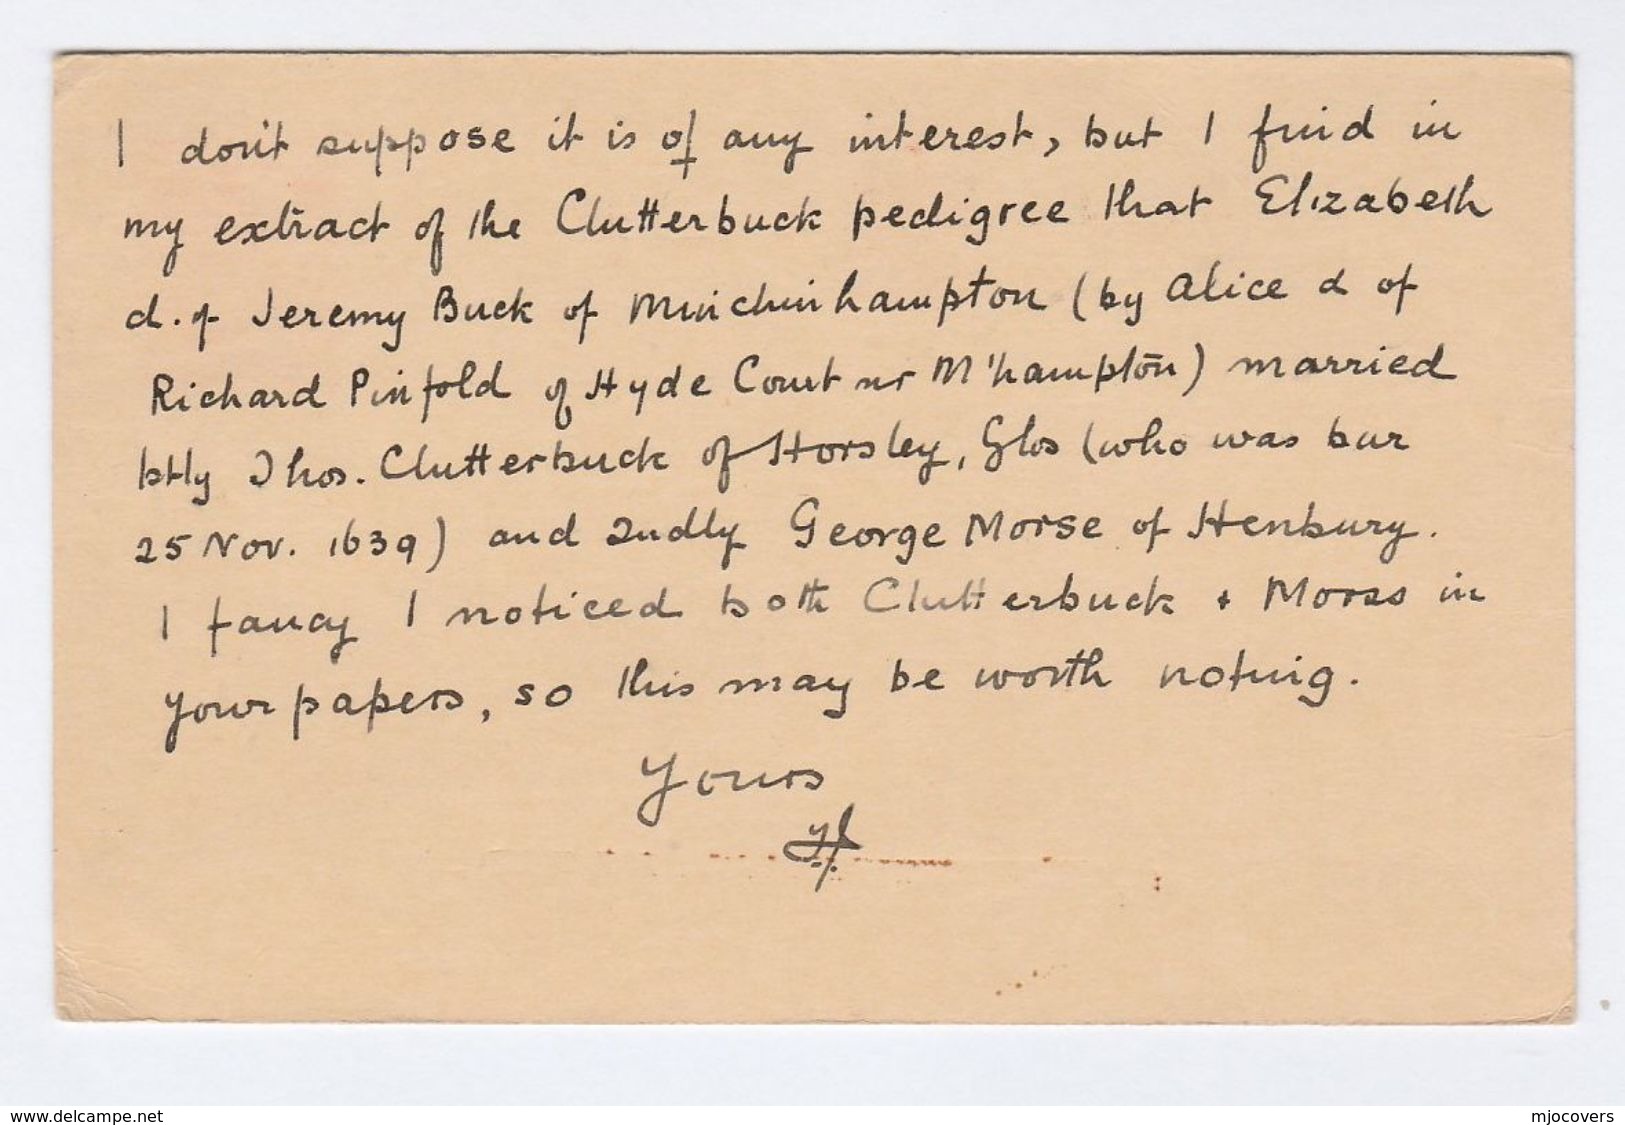 I don't suppose it is of any interest, but I find in
my extract of the Clutterbuck pedigree that Elizabeth
d. of Jeremy Buck of Minchinhampton (by Alice d of
Richard Pinfold of Hyde Court nr M'hampton) married
1stly Thos. Clutterbuck of Horsley, Glos (who was bur
25 Nov. 1639) and 2ndly George Morse of Henbury.
I fancy I noticed both Clutterbuck + Morss in
your papers, so this may be worth noting.
Yours
www.delcampe.net
mjocovers